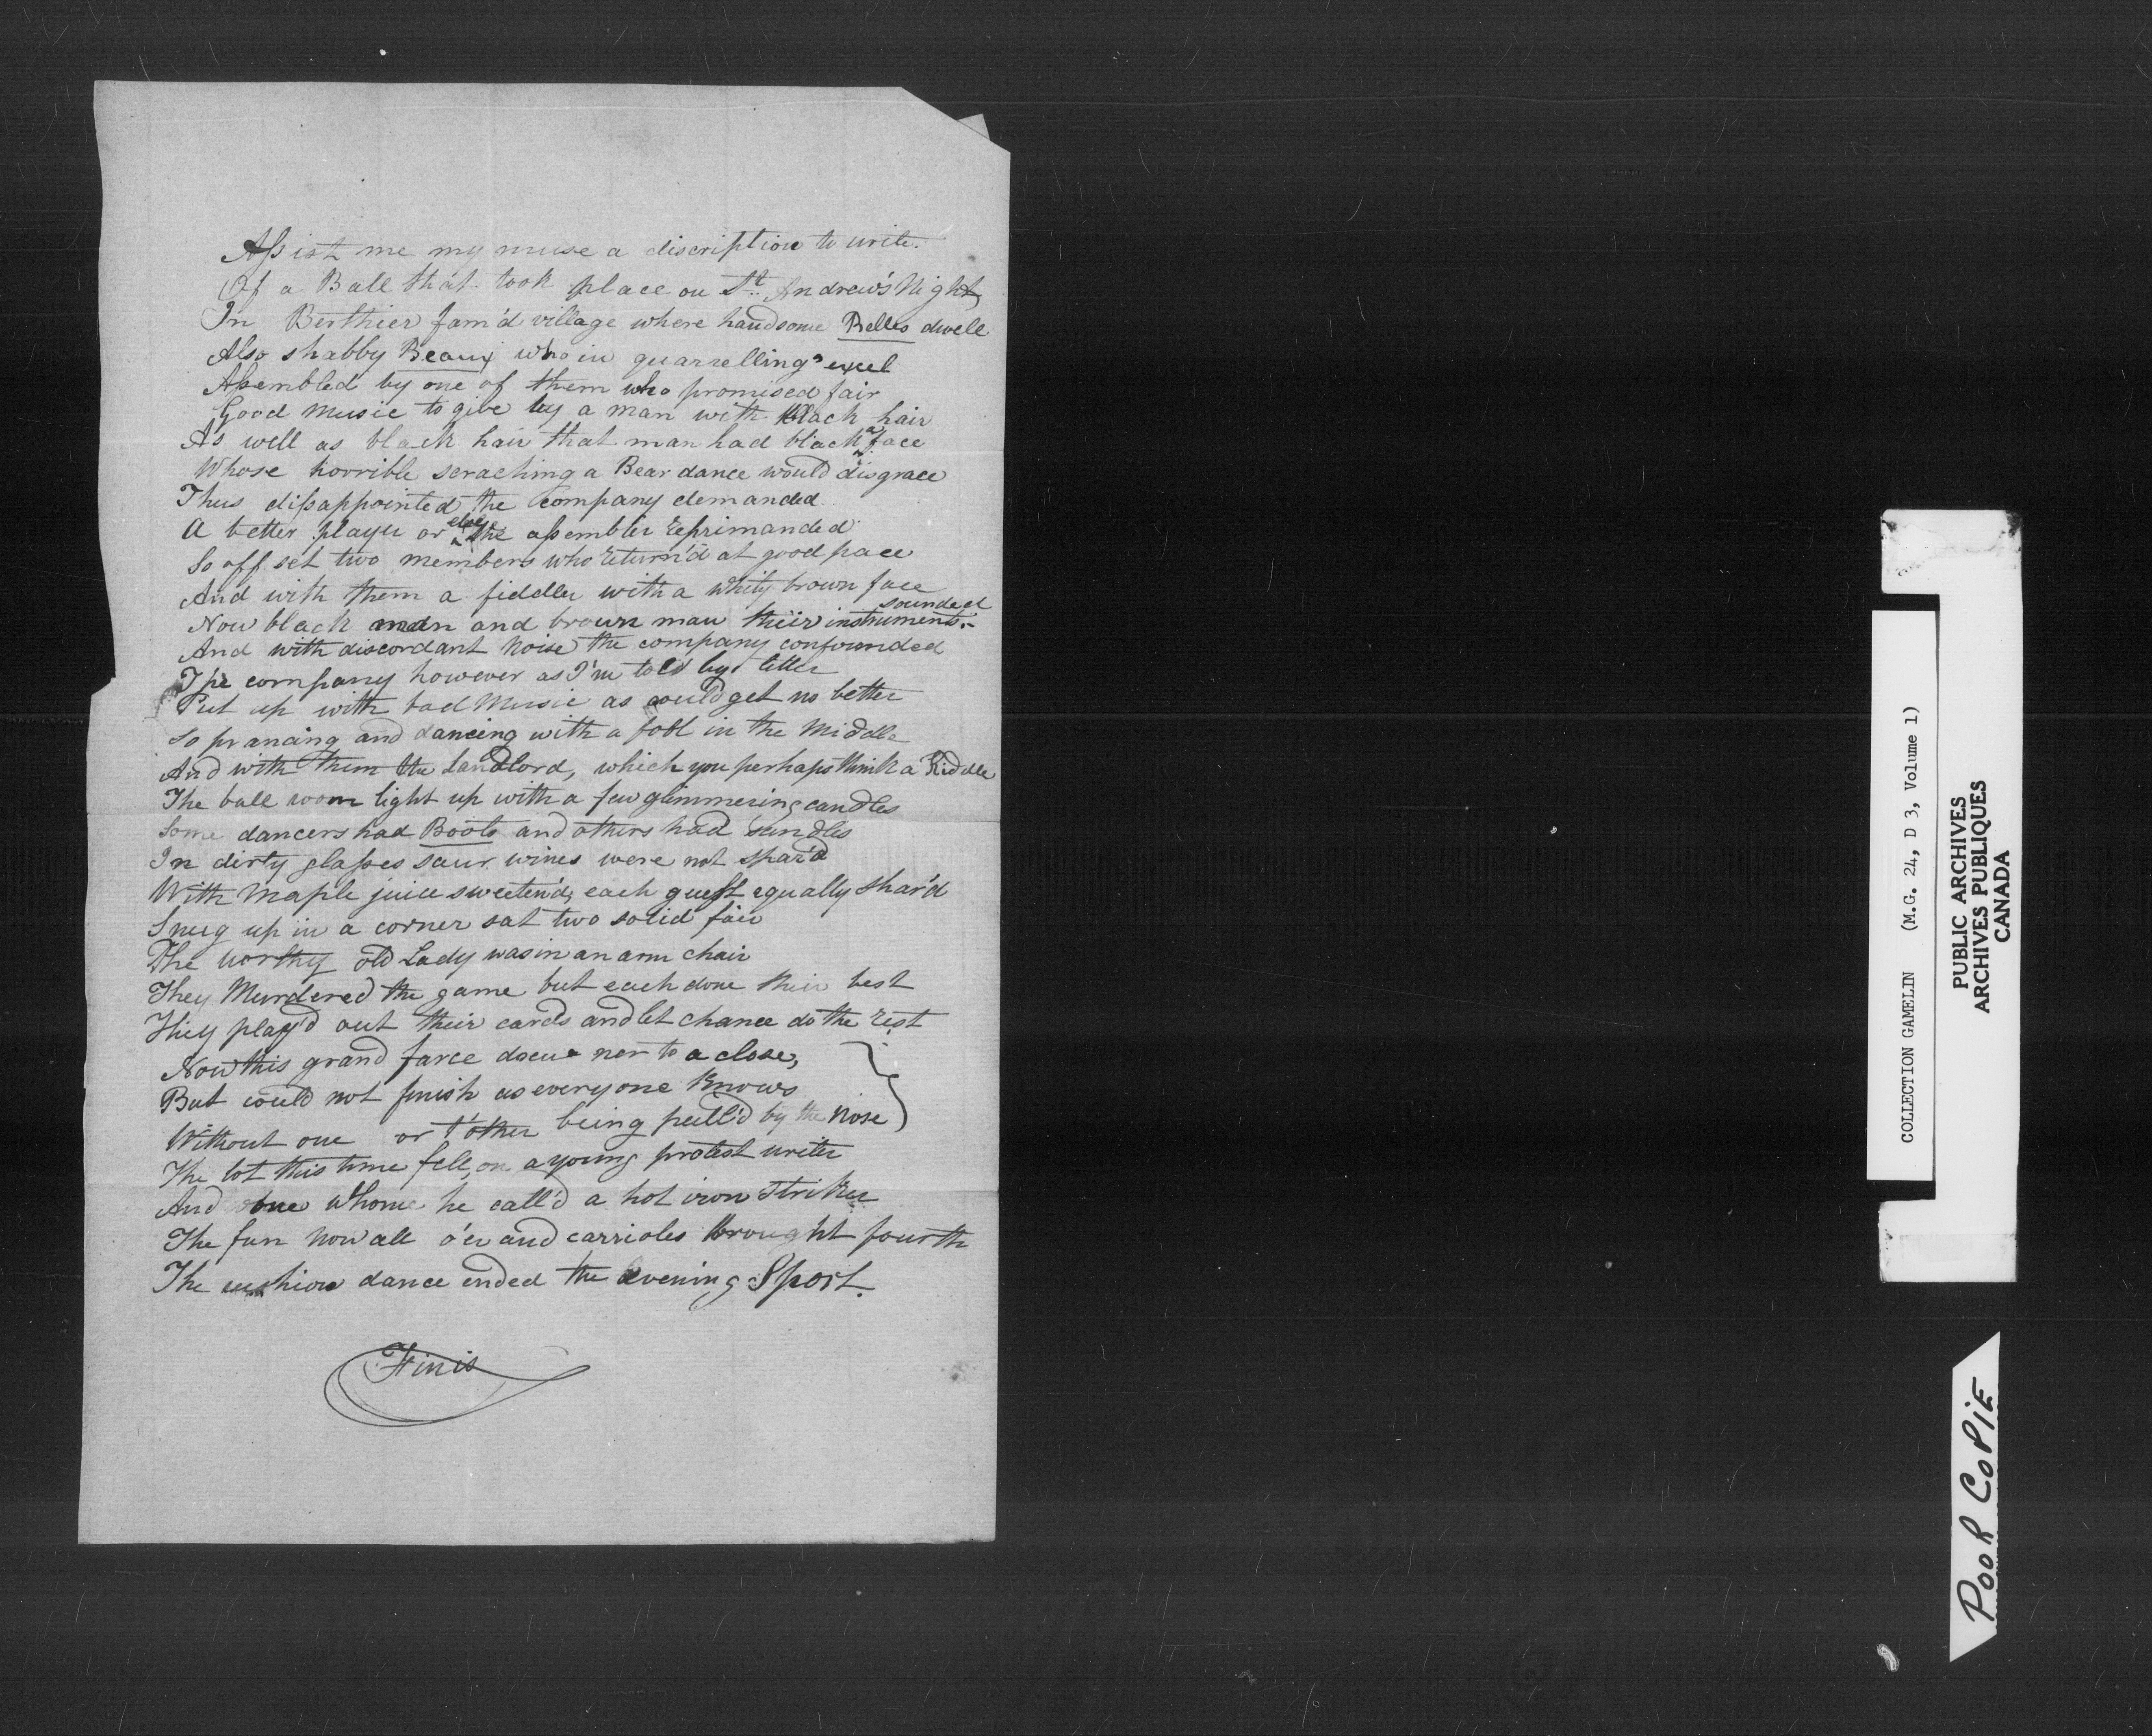 Assist me my muse a discription to write.
Of a Ball that took place on St. Andrew's Night
In Berthier fam'd village where handsome Belles dwell
Also shabby Beaux who in quarrelling exel
Assembled by one of them who promised fair
Good Music to give by a man with black hair
As well as black hair that man had black a face
Whose horrible scraching a Bear dance would disgrace
Thus dissappointed the company demanded
A better player or else the assembler reprimanded
So off set two members who return'd at good pace
And with them a fiddler with a whity brown face
Now black man and brown man their instruments sounded
And with discordant Noise the company confounded
The company however as I'm told by letter
Put up with bad Music as could get no better
So prancing and dancing with a fool in the Middle
And with them the Landlord, which you perhaps think a Riddle
The ball room light up with a few glimmering candles
Some dancers had Boots and others had sandles
In dirty glasses sour wines were not spar'd
With Maple juice sweeten'd, each guest equally shar'd
Snug up in a corner sat two solid fair
The worthy old Lady was in an arm chair
They Murdered the game but each done their best
They play'd out their cards and let chance do the rest
Now this grand farce nor to a close,
But could not finish as everyone knows
Without one or t'other being pull'd by the Nose
The lot this time fell, on a young protest writer
And one whome he call'd a hot iron Striker
The fun Now all o'er and carrioles brought fourth
The cushion dance ended the evening Sport.
Finis
COLLECTION GAMELIN (M.G. 24, D 3, Volume 1)
PUBLIC ARCHIVES
ARCHIVES PUBLIQUES
CANADA
POOR COPIE